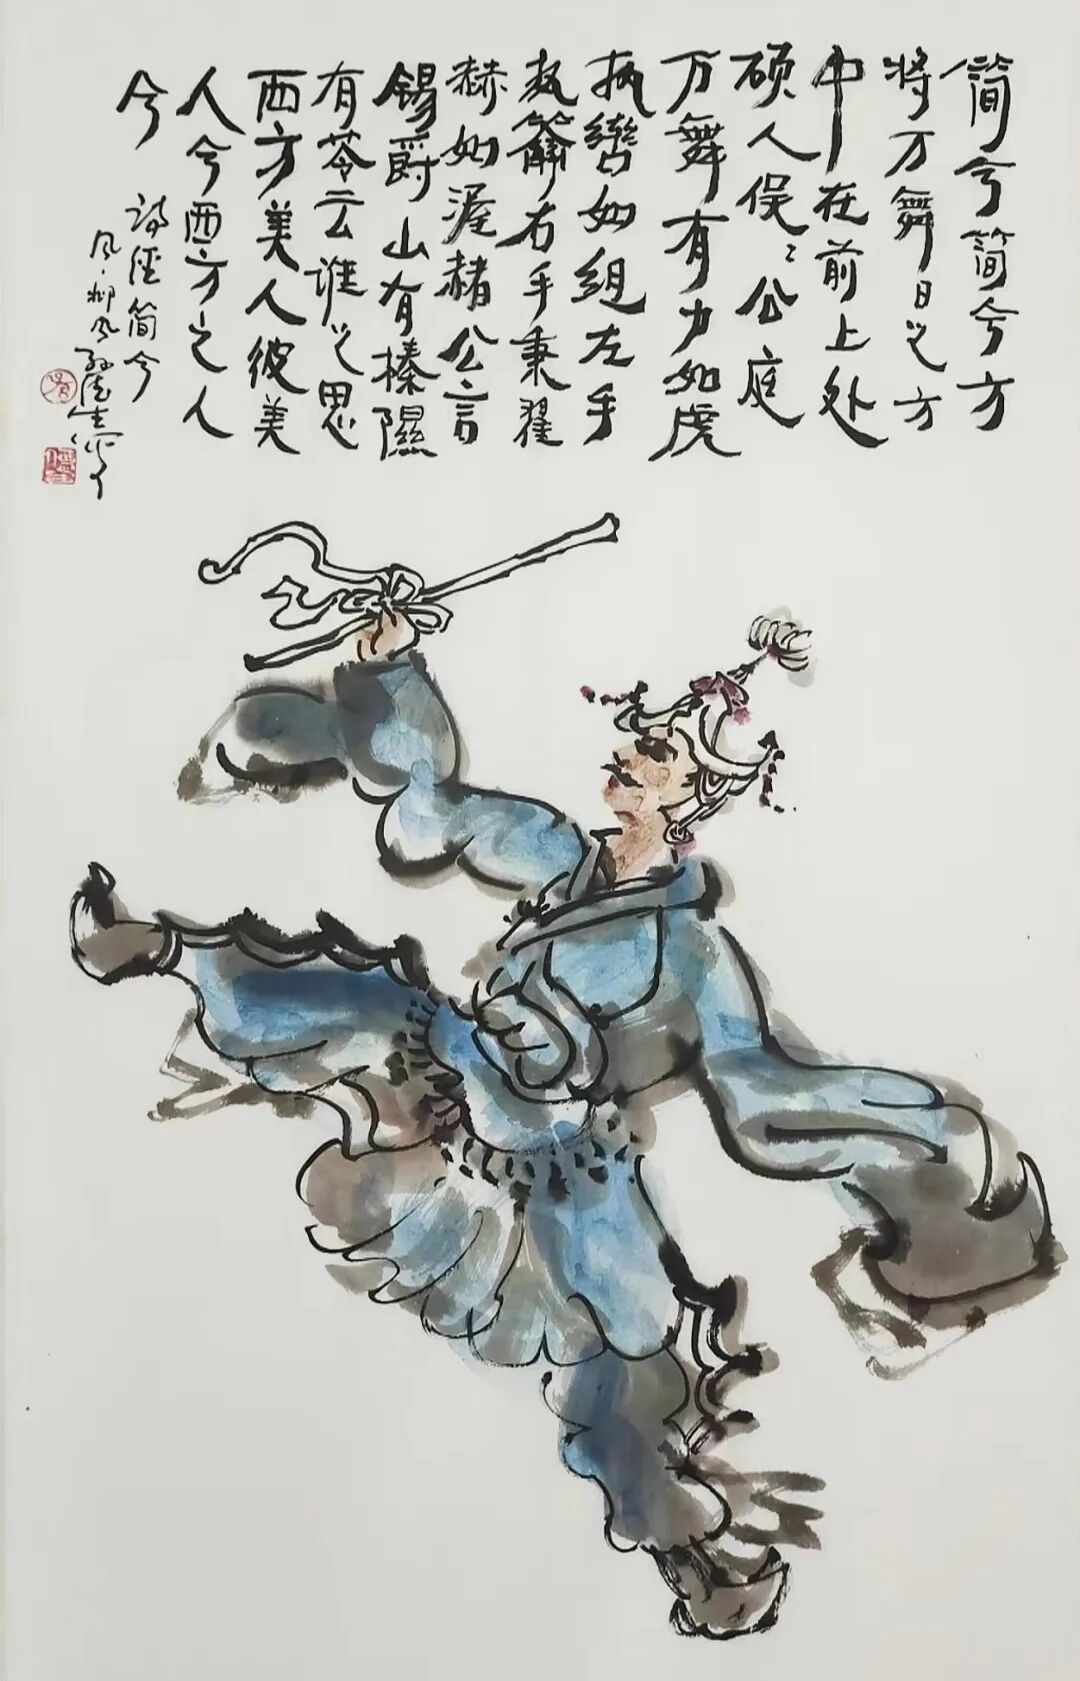 简兮简兮方
将万舞日之方
中在前上处
硕人俣〻公庭
万舞有力如虎
执辔如组左手
执籥右手秉翟
赫如渥赭公言
锡爵山有榛隰
有苓云谁之思
西方美人彼美
人兮西方之人
兮
诗經简兮
风·邶风 生写